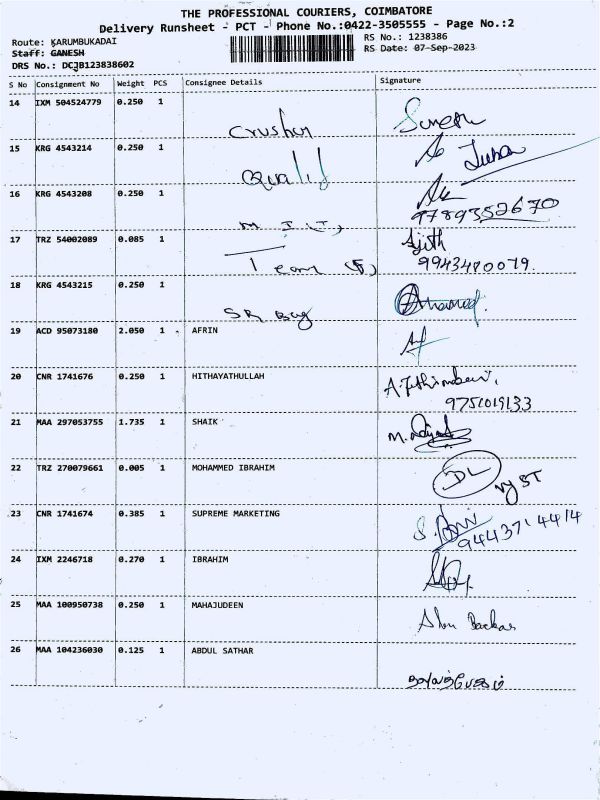 THE PROFESSIONAL COURIERS, COIMBATORE
Delivery Runsheet - PCT - Phone No.:0422-3505555 - Page No.:2
Route: KARUMBUKADAI
RS No.: 1238386
Staff: GANESH
RS Date: 07-Sep-2023
DRS No.: DCJB123838602
S No Consignment No Weight PCS Consignee Details Signature
14 IXM 504524779 0.250 1 Crusher Suresh
15 KRG 4543214 0.250 1
16 KRG 4543208 0.250 1 9789352670
17 TRZ 54002089 0.085 1 Ajith
9943480079
18 KRG 4543215 0.250 1 SR Bag
19 ACD 95073180 2.050 1 AFRIN
20 CNR 1741676 0.250 1 HITHAYATHULLAH
9751019133
21 MAA 297053755 1.735 1 SHAIK
22 TRZ 270079661 0.005 1 MOHAMMED IBRAHIM DL
23 CNR 1741674 0.385 1 SUPREME MARKETING
9443714414
24 IXM 2246718 0.270 1 IBRAHIM
25 MAA 100950738 0.250 1 MAHAJUDEEN Abu Backar
26 MAA 104236030 0.125 1 ABDUL SATHAR